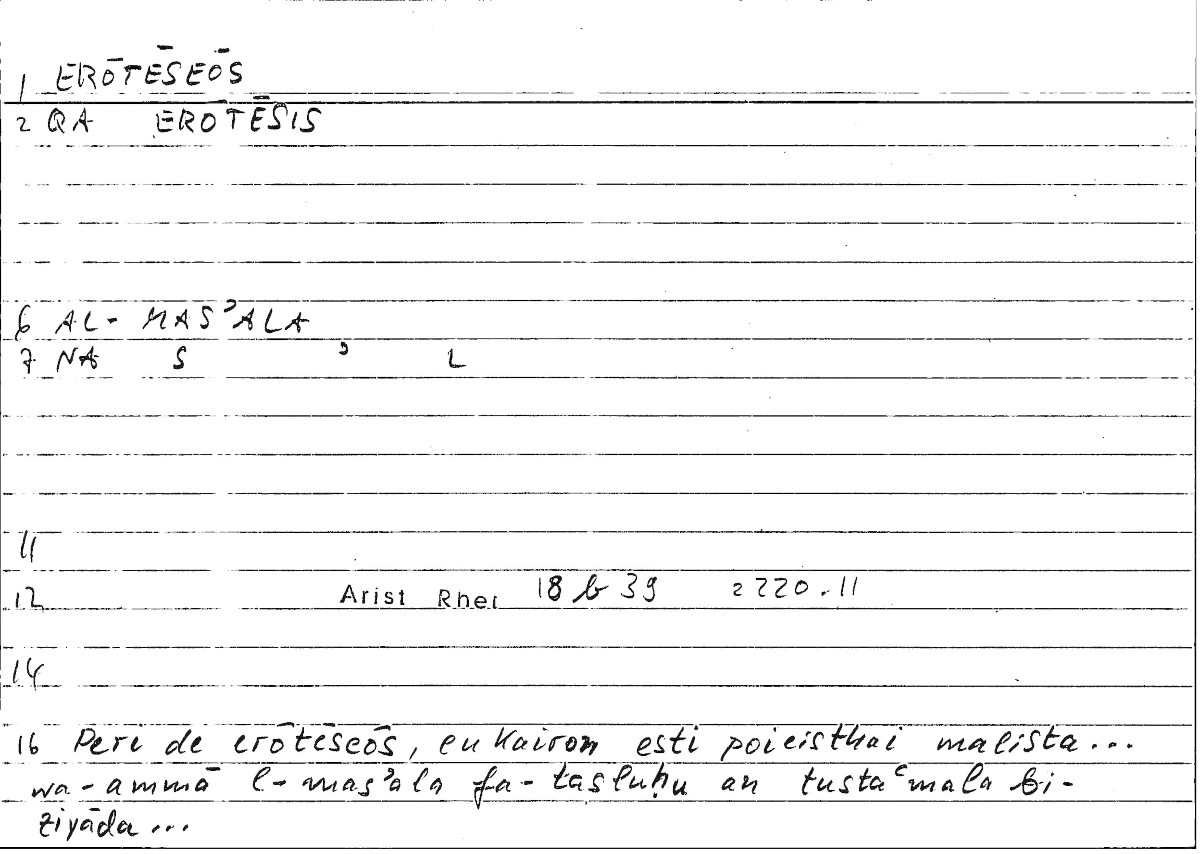 1 ERŌTĒSEŌS
2 QA ERŌTĒSIS
6 AL-MASʾALA
7 NA S ʾ L
11
12 Arist Rhet 18 b 39 2220.11
14
16 Peri de erōtēseōs, eukairon esti poieisthai malista...
wa-ammā l-masʾala fa-tasluḥu an tustaʿmala bi-
ziyāda...